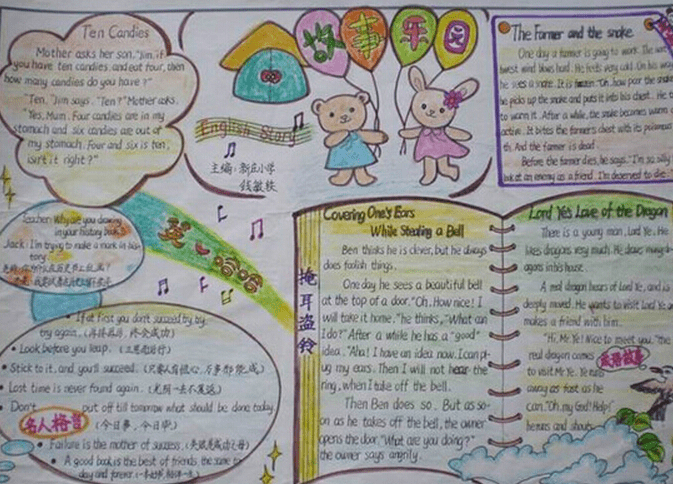 Ten Candies
Mother asks her son. "Jim, if
you have ten candies, and eat four, then
how many candies do you have?"
"Ten." Jim says. "Ten?" Mother asks.
"Yes, Mum. Four candies are in my
stomach and six candies are out of
my stomach. Four and six is ten,
isn't it right?"
故事乐园
English Story
主编:新庄小学
钱敏轶
The Farmer and the snake
One day a farmer is going to work. The
west wind blows hard. He feels very cold. On his way
he sees a snake. It is frozen. "Oh, how poor the snake
he picks up the snake and puts it into his chest. He t
to warm it. After a while, the snake becomes warm
active. It bites the farmer's chest with its poisonous
th. And the farmer is dead.
Before the farmer dies, he says. "I'm so silly
look at an enemy as a friend. I'm deserved to die
Teacher: Why are you drawing
in your history book
Jack: I'm trying to make a mark in his
tory.
英 哈哈
If at first you don't succeed, try, try
try again. (再接再厉,终会成功)
Look before you leap. (三思而后行)
Stick to it, and you'll succeed. (只要人有恒心,万事都能成)
Lost time is never found again. (光阴一去不复返)
Don't put off till tomorrow what should be done today.
名人格言 (今日事,今日毕)
Failure is the mother of success. (失败是成功之母)
A good book is the best of friends, the same to
day and forever.
掩耳盗铃
Covering One's Ears
While Stealing a Bell
Ben thinks he is clever, but he always
does foolish things.
One day he sees a beautiful bell
at the top of a door. "Oh, How nice! I
will take it home." he thinks, "What can
I do?" After a while he has a "good"
idea. "Aha! I have an idea now. I can pl-
ug my ears. Then I will not hear the
ring, when I take off the bell.
Then Ben does so. But as so-
on as he takes off the bell, the owner
opens the door. "What are you doing?"
the owner says angrily.
Lord Ye's Love of the Dragon
There is a young man, Lord Ye. He
likes dragons very much. He draws many dr-
agons in his house.
A real dragon hears of Lord Ye, and is
deeply moved. He wants to visit Lord Ye an
makes a friend with him.
"Hi, Mr Ye! Nice to meet you." the
real dragon comes 成语故事
to visit Mr Ye. Ye runs
away as fast as he
can. "Oh, my God! Help!"
he runs and shouts.